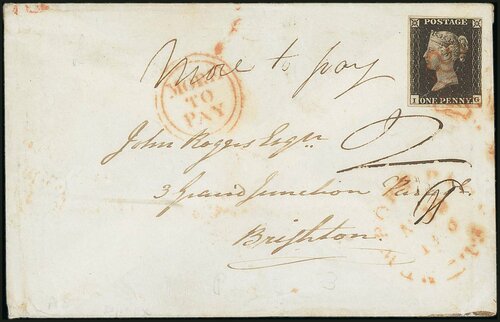 POSTAGE
ONE PENNY
More to pay
MORE
TO
PAY
John Rogers Esqre
2
3 Grand Junction
Brighton